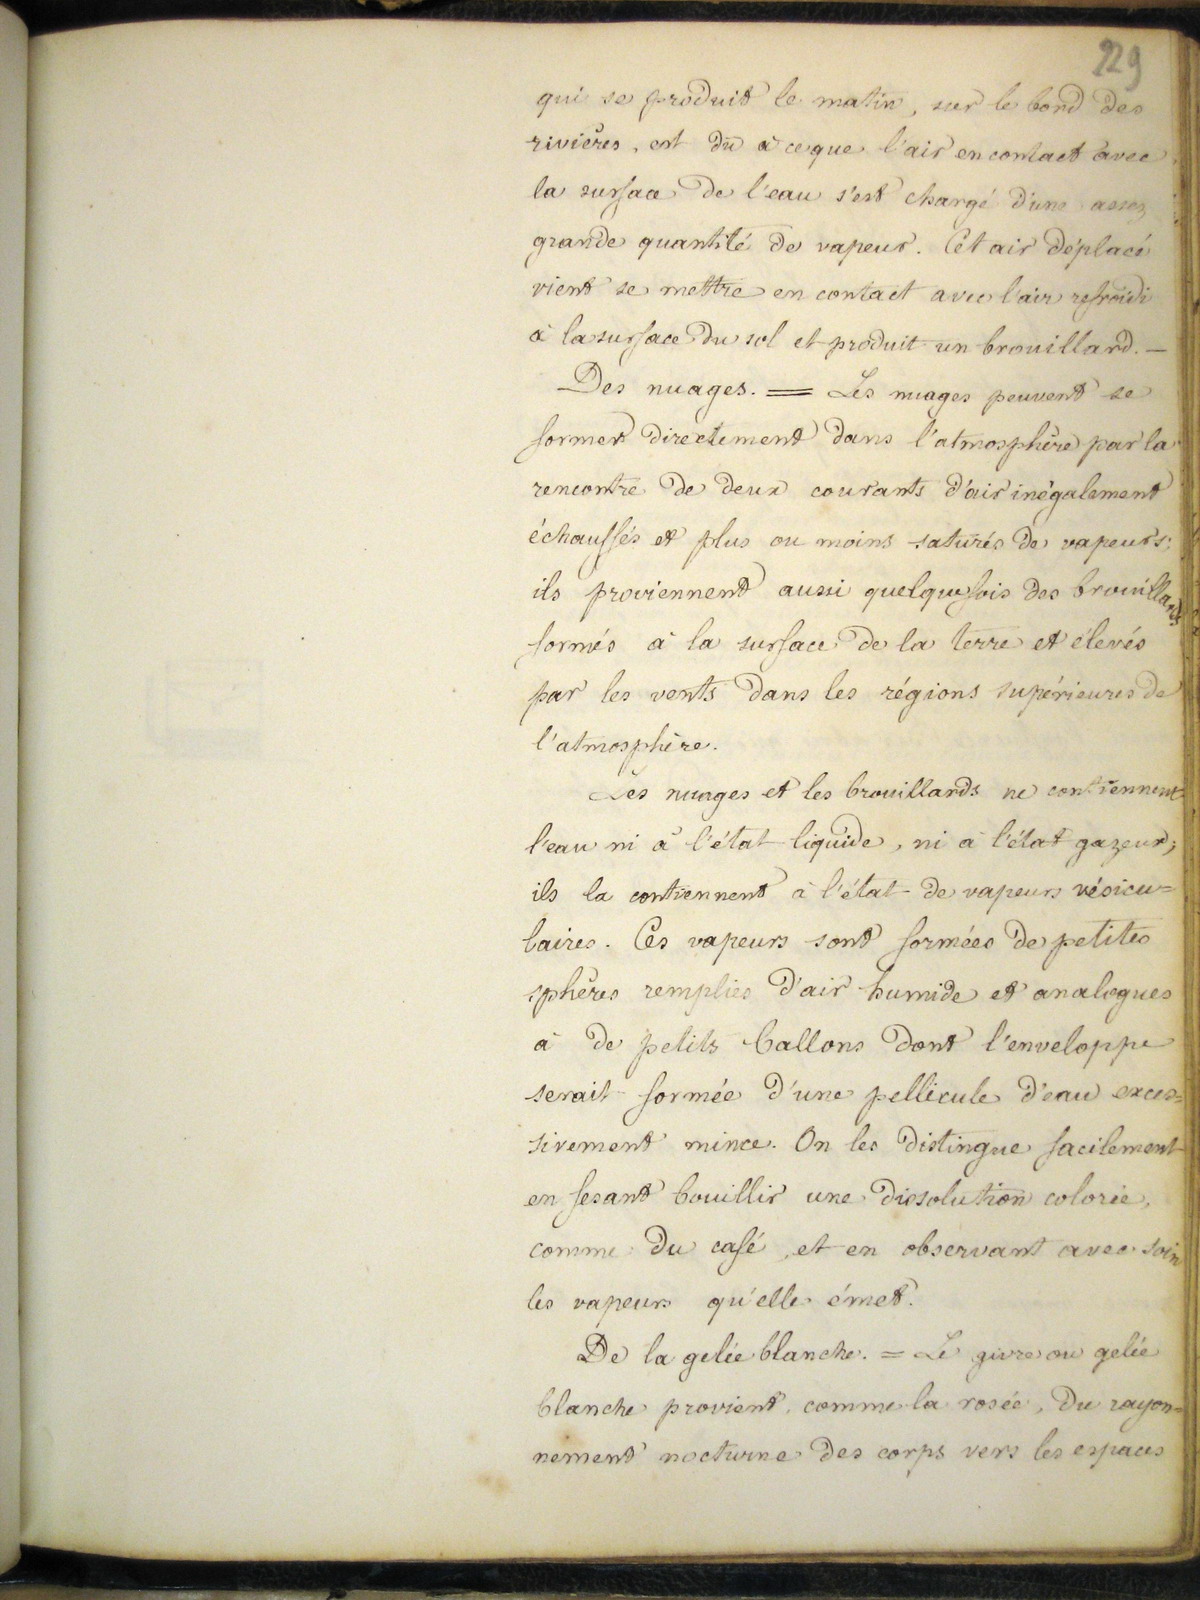 229
qui se produit le matin, sur le bord des
rivières, est dû à ce que l'air en contact avec
la surface de l'eau s'est chargé d'une assez
grande quantité de vapeur. Cet air déplacé
vient se mettre en contact avec l'air refroidi
à la surface du sol et produit un brouillard. —
Des nuages. = Les nuages peuvent se
former directement dans l'atmosphère par la
rencontre de deux courants d'air inégalement
échauffés et plus ou moins saturés de vapeurs;
ils proviennent aussi quelquefois des brouillards
formés à la surface de la terre et élevés
par les vents dans les régions supérieures de
l'atmosphère.
Les nuages et les brouillards ne contiennent
l'eau ni à l'état liquide, ni à l'état gazeux;
ils la contiennent à l'état de vapeurs vésicu=
laires. Ces vapeurs sont formées de petites
sphères remplies d'air humide et analogues
à de petits ballons dont l'enveloppe
serait formée d'une pellicule d'eau exces=
sivement mince. On les distingue facilement
en fesant bouillir une dissolution colorée,
comme du café, et en observant avec soin
les vapeurs qu'elle émet.
De la gelée blanche. = Le givre ou gelée
blanche provient, comme la rosée, du rayon=
nement nocturne des corps vers les espaces